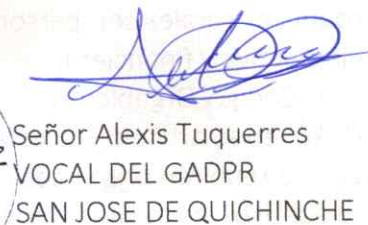 Señor Alexis Tuquerres
VOCAL DEL GADPR
SAN JOSE DE QUICHINCHE